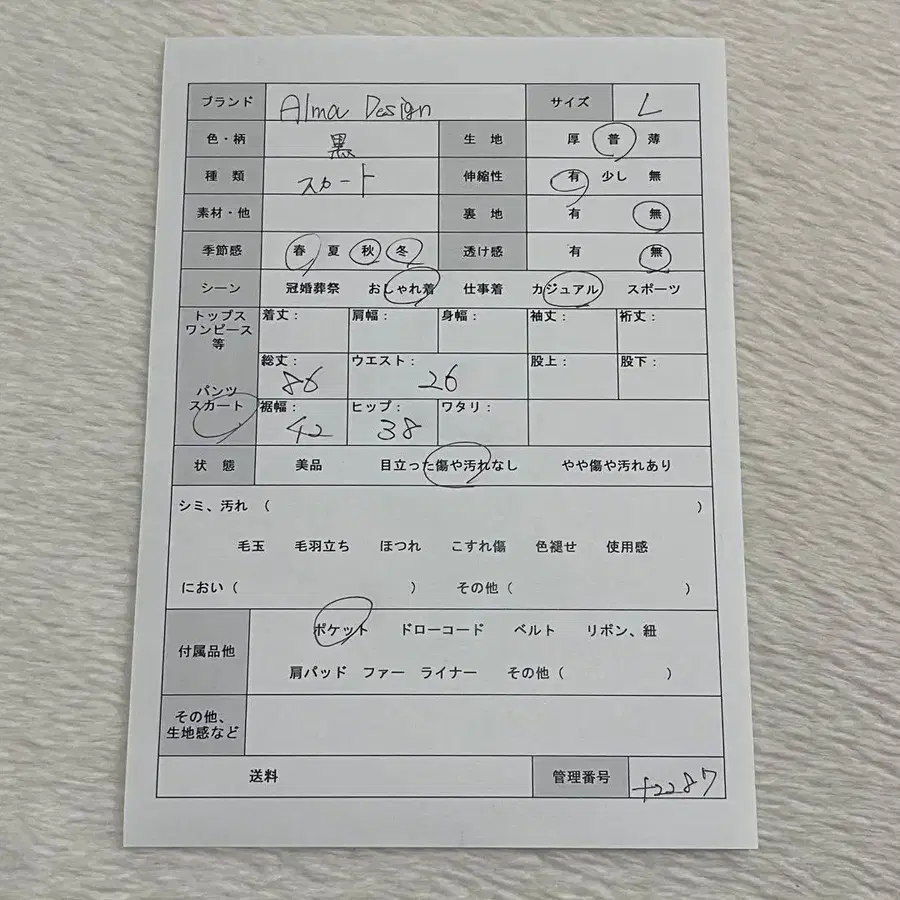 ブランド Alma Design サイズ L
色・柄 黒 生 地 厚 普 薄
種 類 スカート 伸縮性 有 少し 無
素材・他 裏 地 有 無
季節感 春 夏 秋 冬 透け感 有 無
シーン 冠婚葬祭 おしゃれ着 仕事着 カジュアル スポーツ
トップス
ワンピース
等
着丈: 肩幅: 身幅: 袖丈: 裄丈:
パンツ
スカート
総丈: 86 ウエスト: 26 股上: 股下:
裾幅: 42 ヒップ: 38 ワタリ:
状 態 美品 目立った傷や汚れなし やや傷や汚れあり
シミ、汚れ ( )
毛玉 毛羽立ち ほつれ こすれ傷 色褪せ 使用感
におい ( ) その他 ( )
付属品他 ポケット ドローコード ベルト リボン、紐
肩パッド ファー ライナー その他 ( )
その他、
生地感など
送料 管理番号 +2287